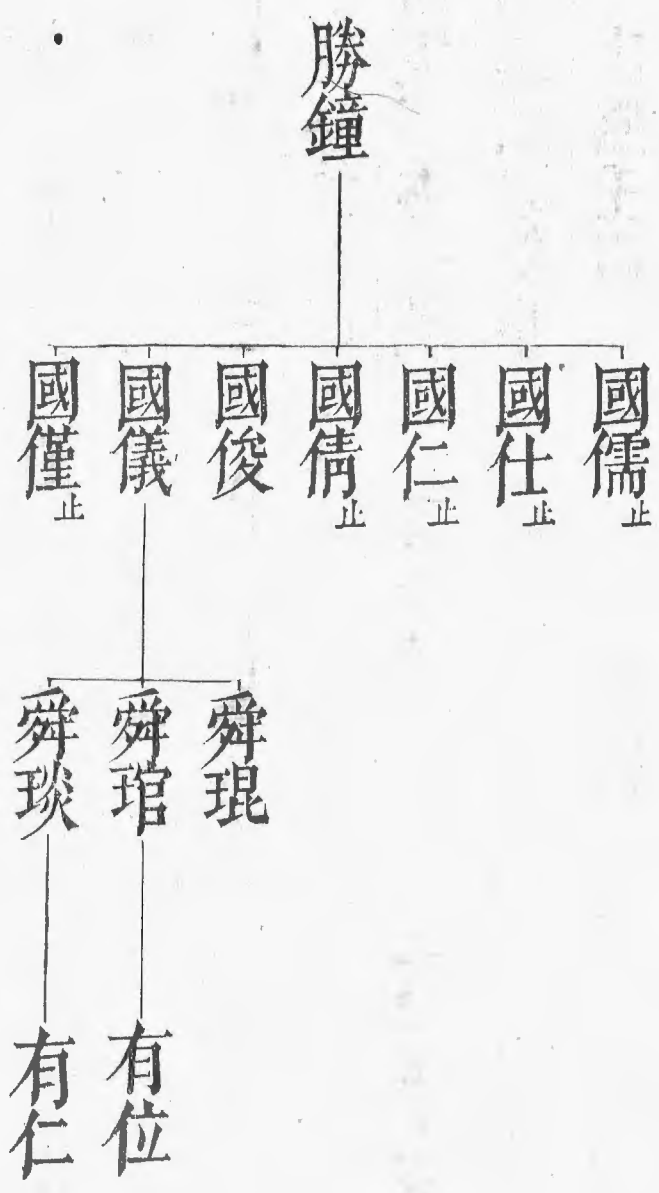 勝鐘
國儒止
國仕止
國仁止
國倩止
國俊
國儀
國僅止
舜琨
舜琯
舜琰
有位
有仁